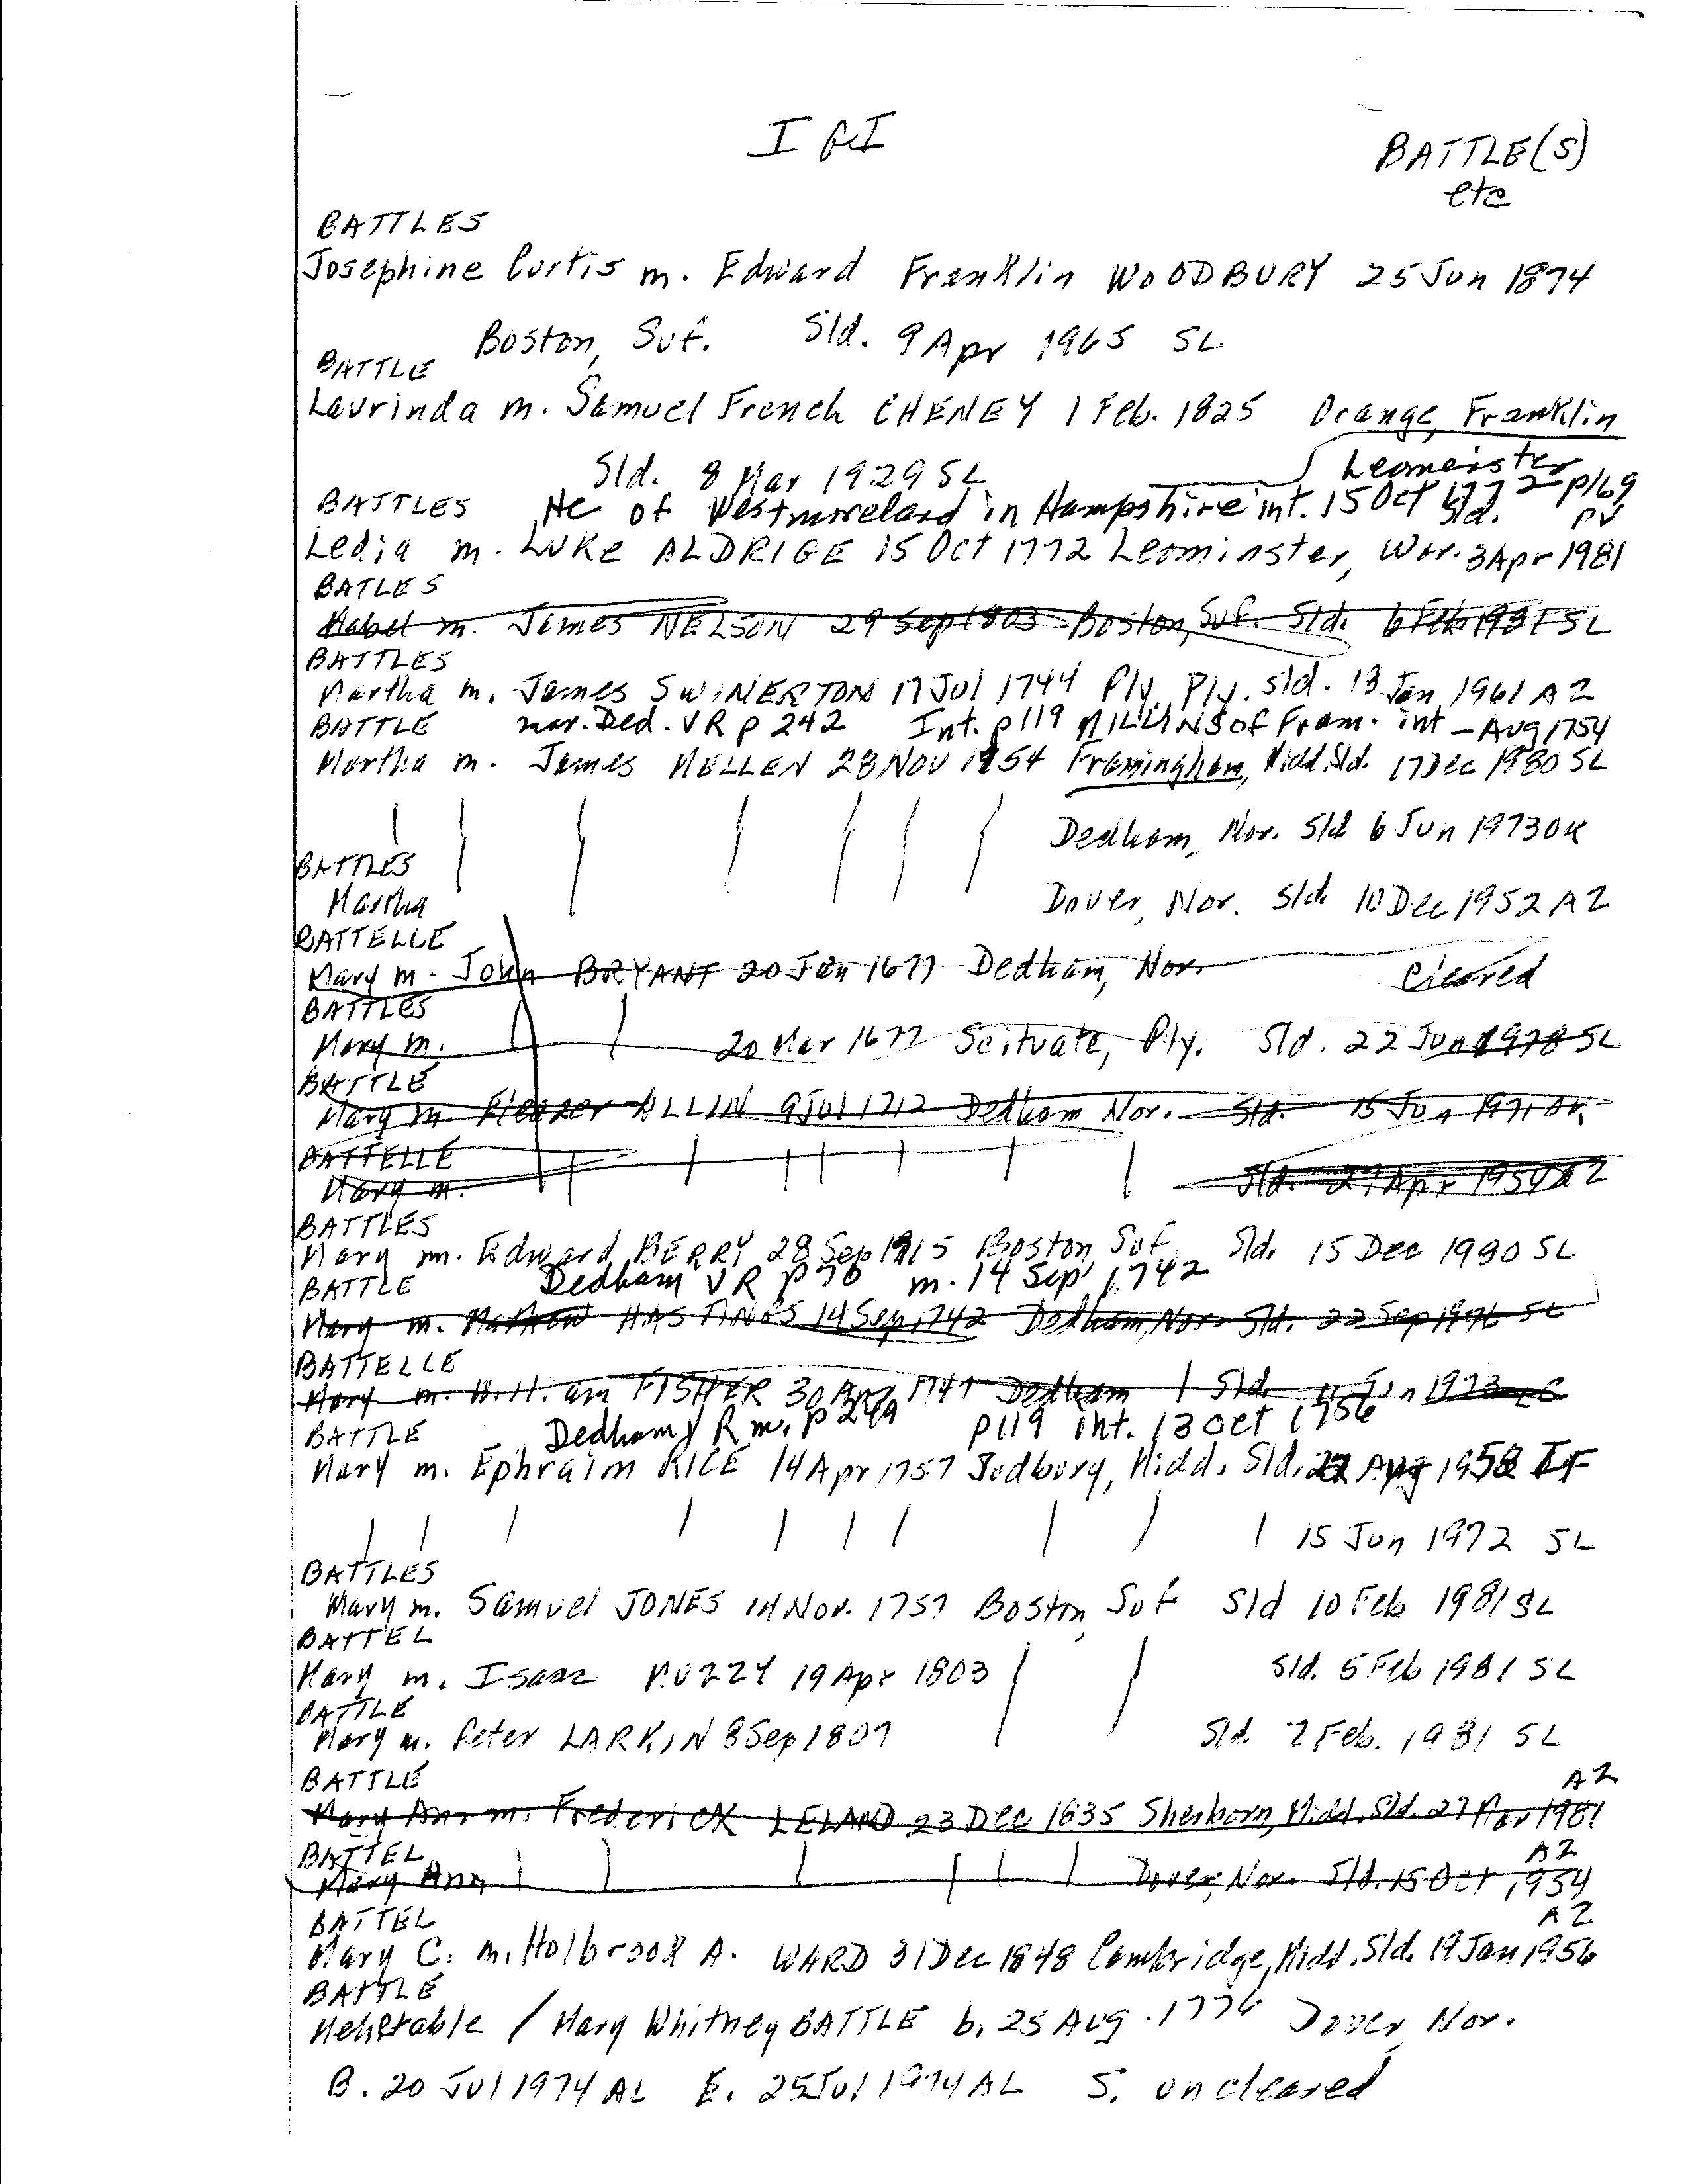 IGI
BATTLE(S)
etc
BATTLES
Josephine Curtis m. Edward Franklin WOODBURY 25 Jun 1874
Boston, Suf. Sld. 9 Apr 1965 SL
BATTLE
Laurinda m. Samuel French CHENEY 1 Feb. 1825 Orange, Franklin
Sld. 8 Mar 1929 SL Leomeister
BATTLES He of Westmoreland in Hampshire int. 15 Oct 1772 p169
Sld. PV
Ledia m. LUKE ALDRIGE 15 Oct 1772 Leominster, Wor. 3 Apr 1981
BATLES
Mabel m. James NELSON 29 Sep 1803 Boston, Suf. Sld. 6 Feb 1981 SL
BATTLES
Martha m. James SWINERTON 17 Jul 1744 Ply, Ply. sld. 13 Jan 1961 AZ
BATTLE mar. Ded. VR p 242 Int. p119 MILLINS of Fram. int - Aug 1754
Martha m. James MELLEN 28 NOV 1754 Framingham, Midd. Sld. 17 Dec 1980 SL
Dedham, Nor. Sld 6 Jun 1973 OK
BATTLES
Martha Dover, Nor. Sld. 10 Dec 1952 AZ
BATTELLE
Mary m. John BRYANT 20 Jan 1677 Dedham, Nor. Cleared
BATTLES
Mary m. 20 Mar 1677 Scituate, Ply. Sld. 22 Jun 1978 SL
BATTLE
Mary m. Eleazer ALLIN 9 Jul 1712 Dedham Nor. Sld. 15 Jun 1971
BATTELLE
Mary m. Sld. 27 Apr 1954 AZ
BATTLES
Mary m. Edward BERRY 28 Sep 1715 Boston, Suf. Sld. 15 Dec 1980 SL
BATTLE Dedham VR p 70 m. 14 Sep 1742
Mary m. Mathew HASTINGS 14 Sep 1742 Dedham, Nor. Sld. 22 Sep 1976 SL
BATTELLE
Mary m. William FISHER 30 Apr 1747 Dedham Sld. Jun 1973
BATTLE Dedham VR m. p 249 p119 int. 13 Oct 1756
Mary m. Ephraim RICE 14 Apr 1757 Sudbury, Midd. Sld. 22 Aug 1958 IF
15 Jun 1972 SL
BATTLES
Mary m. Samuel JONES 14 Nov. 1757 Boston, Suf Sld 10 Feb 1981 SL
BATTEL
Mary m. Isaac MUZZY 19 Apr 1803 Sld. 5 Feb 1981 SL
BATTLE
Mary m. Peter LARKIN 8 Sep 1807 Sld. 2 Feb. 1981 SL
BATTLE AZ
Mary Ann m. Frederick LELAND 23 Dec 1835 Sherborn, Midd. Sld. 27 Mar 1981
BATTEL AZ
Mary Ann Dover, Nor. Sld. 15 Oct 1954
BATTEL AZ
Mary C. m. Holbrook A. WARD 31 Dec 1848 Cambridge, Midd. Sld. 19 Jan 1956
BATTLE
Mehetable / Mary Whitney BATTLE b. 25 Aug. 1776 Dover, Nor.
B. 20 Jul 1974 AL E. 25 Jul 1974 AL S. uncleared